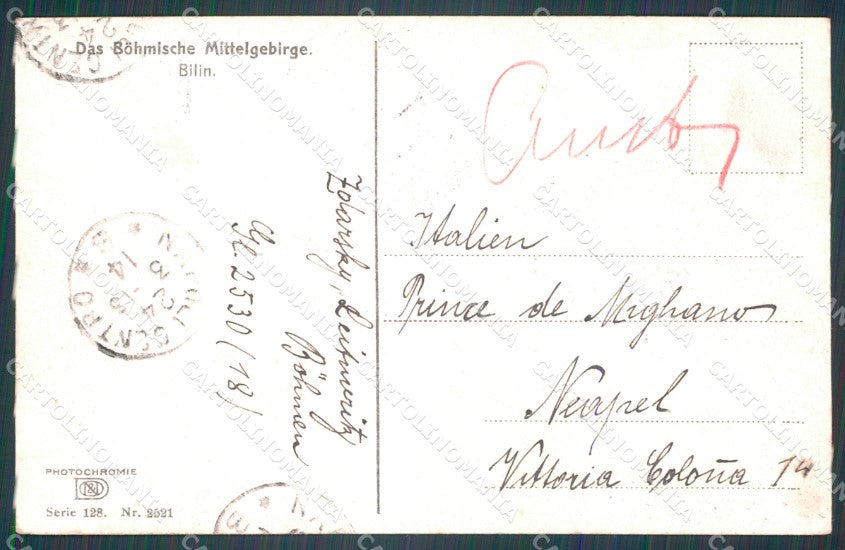 Das Böhmische Mittelgebirge.
Bilin.
Zdarsky, Leitmeritz
Böhmen
2530/18/
Italien
Prince de Mighano
Neapel
Vittoria Coloña 14
NAPOLI CENTRO
PHOTOCHROMIE
Serie 128. Nr. 2521
CARTOLINOMANIA